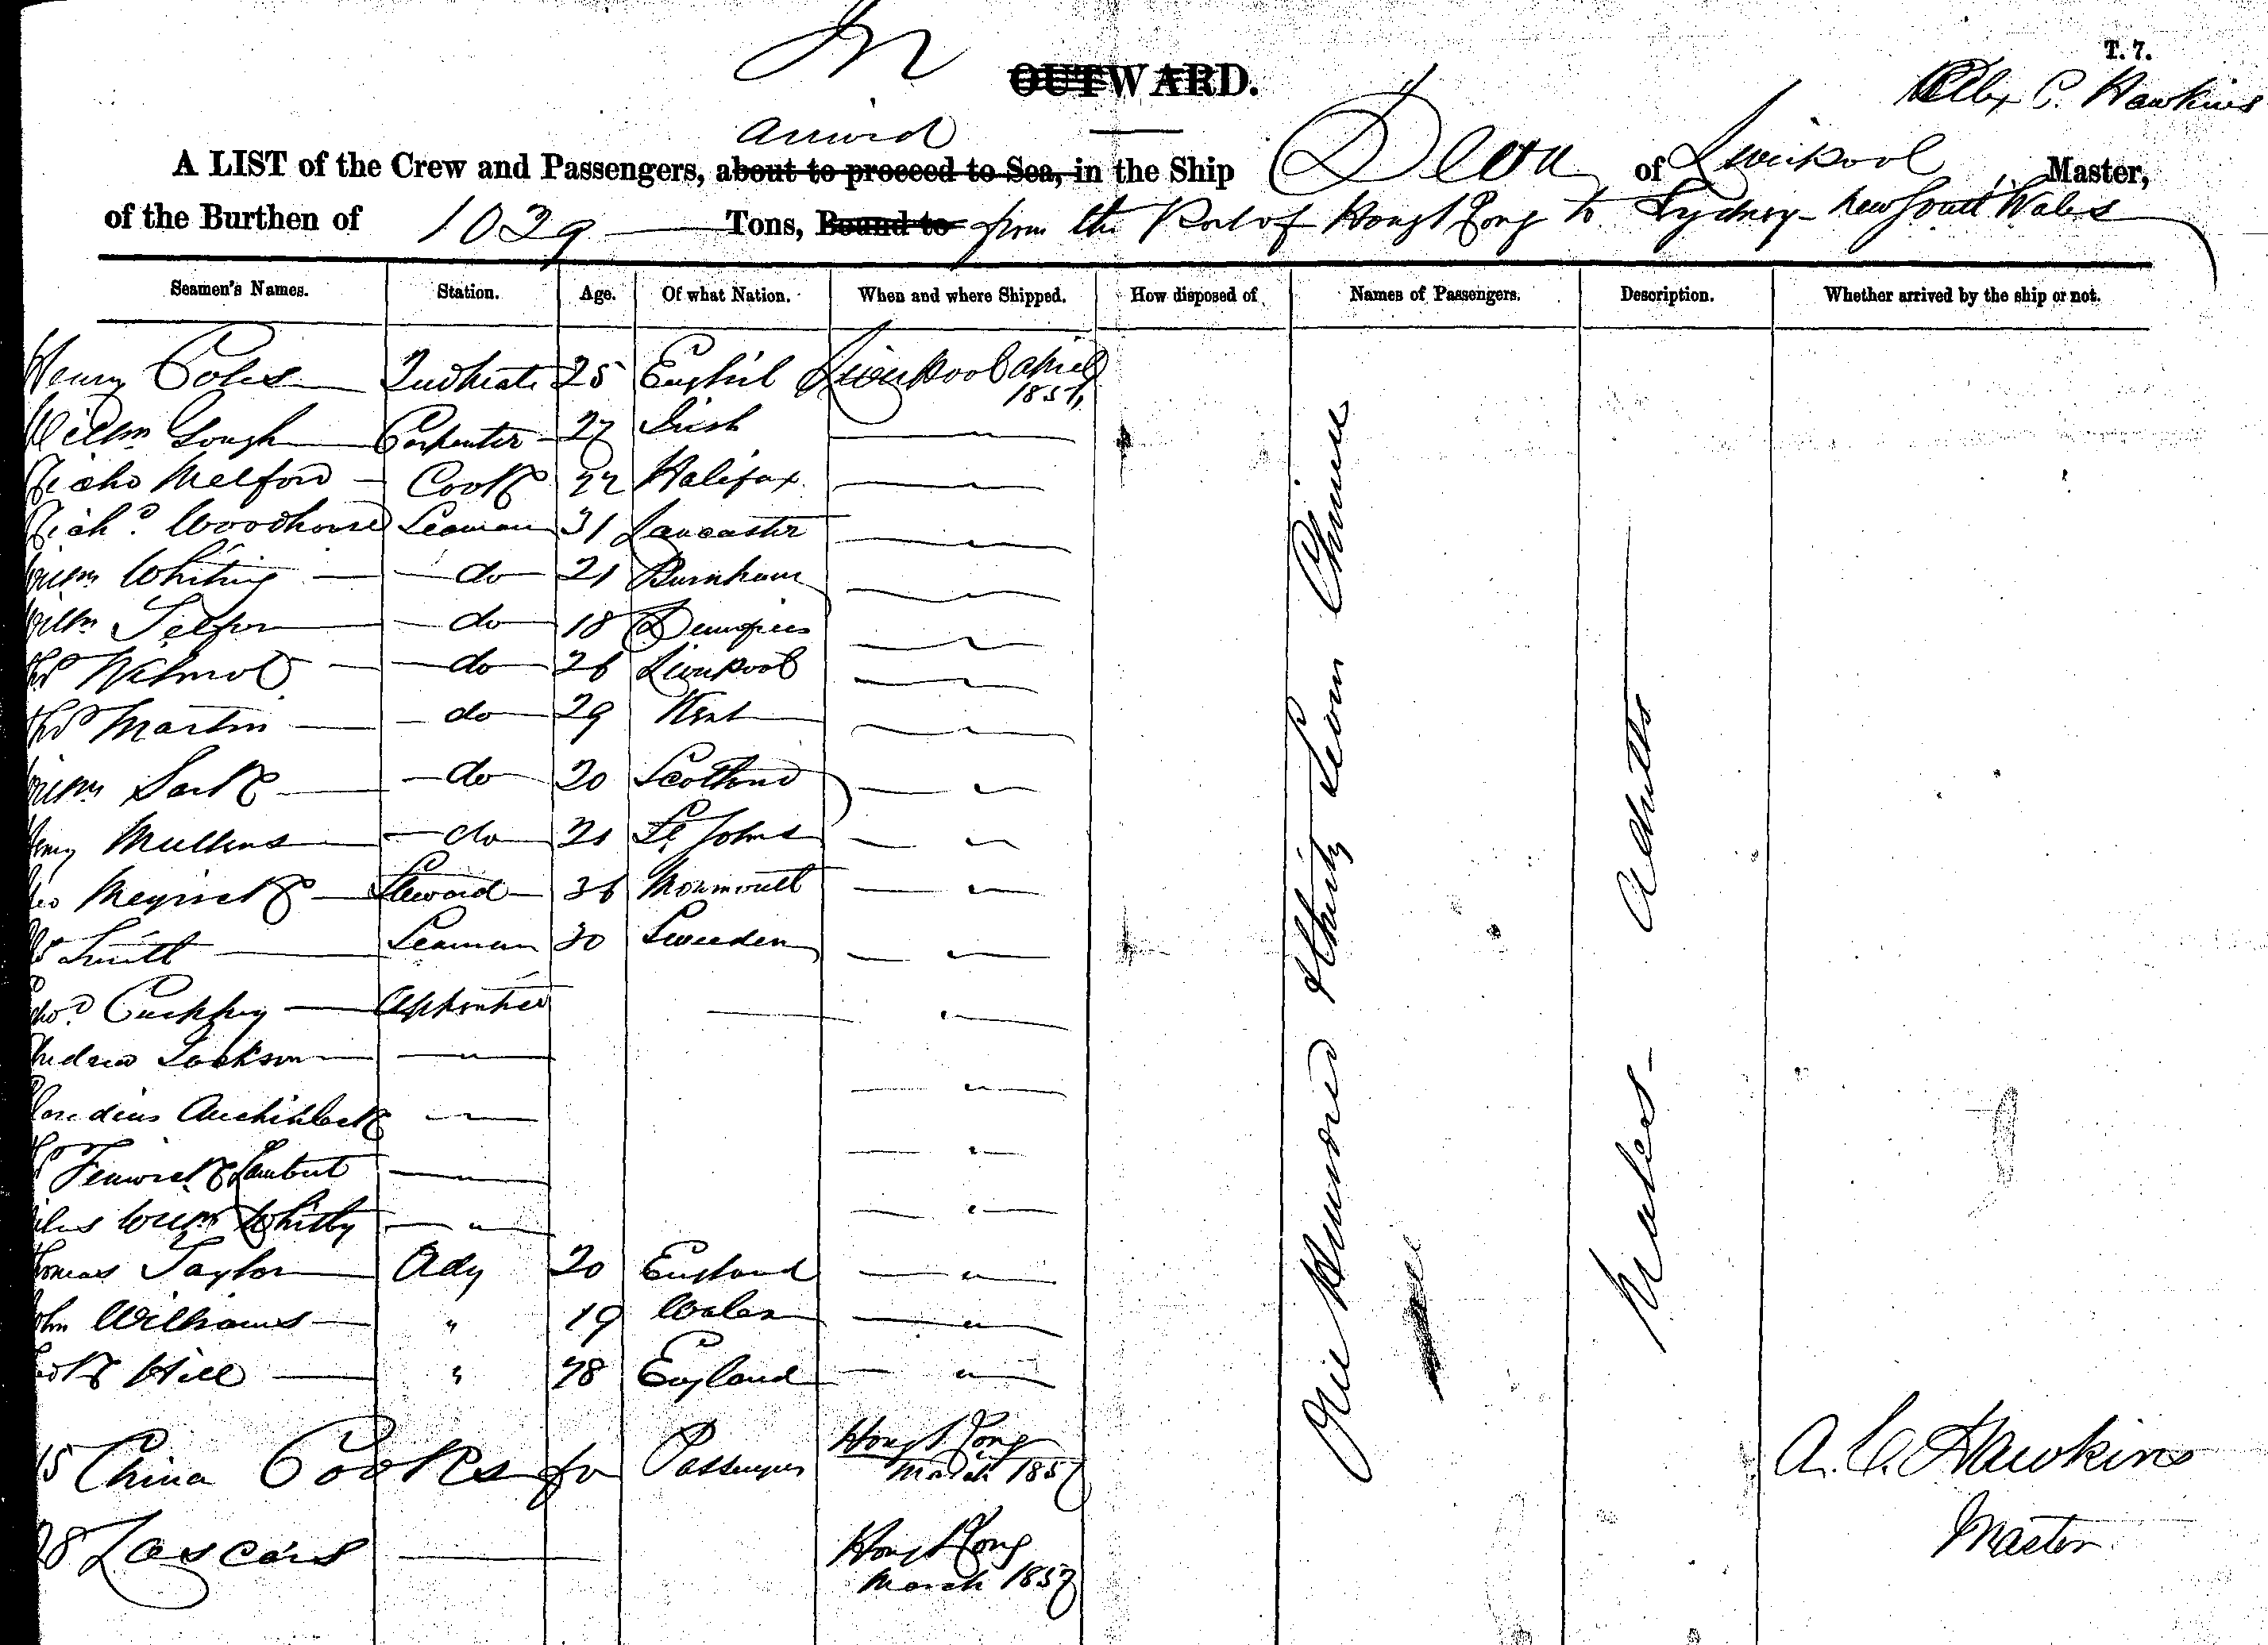 In
T. 7.
OUTWARD.
Alex C. Hawkins
arrived
A LIST of the Crew and Passengers, about to proceed to Sea, in the Ship of Liverpool, Master,
of the Burthen of 1039 Tons, Bound to from the Port of Hong Kong to Sydney - New South Wales
Seamen's Names. Station. Age. Of what Nation. When and where Shipped. How disposed of. Names of Passengers. Description. Whether arrived by the ship or not.
Henry Coles 2nd Mate 25 English Liverpool April
185
Willm Gough Carpenter 27 Irish "
Richd Melford Cook 22 Halifax "
Richd. Woodhouse Seaman 31 Lancaster "
Willm Whiting do 21 Burnham "
Willm Telfer do 18 Dumfries "
Thos Wilmot do 26 Liverpool "
Thos Martin do 29 Kent "
Willm Sark do 20 Scotland "
Henry Mullens do 21 St Johns "
Geo Meyrick Steward 36 Monmouth "
Smith Seaman 30 Sweeden "
Apprentice "
Andrew Jackson " "
Claudius Auchinleck "
Fenwick Lambert " "
Willm Whitby " "
Thomas Taylor Ady 20 England "
John Williams " 19 Wales "
Hill " 28 England "
15 China Cooks for Passengers Hong Kong
March 1857
28 Lascars Hong Kong
March 1857
One Hundred & thirty Seven Chinese
Males - Adults
A. C. Hawkins
Master